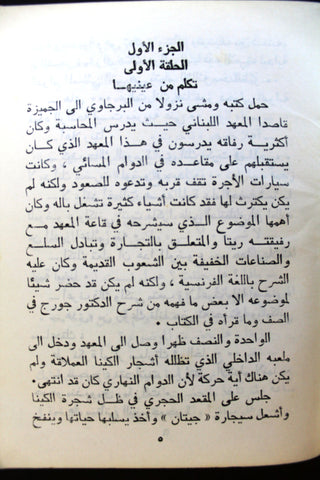 الجزء الأول
الحلقة الأولى
تكلم من عينيهـا
حمل كتبه ومشى نزولا من البرجاوي الى الجميزة
قاصدا المعهد اللبناني حيث يدرس المحاسبة وكان
أكثرية رفاقه يدرسون في هذا المعهد الذي كان
يستقبلهم على مقاعده في الدوام المسائي ، وكانت
سيارات الأجرة تقف قربه وتدعوه للصعود ولكنه لم
يكن يكترث لها فقد كانت أشياء كثيرة تشغل باله وكان
أهمها الموضوع الذي سيشرحه في قاعة المعهد مع
رفيقته ريتا والمتعلق بالتجارة وتبادل السلع
والصناعات الخفيفة بين الشعوب القديمة وكان عليه
الشرح باللغة الفرنسية ، ولكنه لم يكن قد حضر شيئا
لموضوعه الا بعض ما فهمه من شرح الدكتور جورج في
الصف وما قرأه في الكتاب .
الواحدة و النصف ظهرا وصل الى المعهد ودخل الى
ملعبه الداخلي الذي تظلله أشجار الكينا العملاقة ولم
يكن هناك أية حركة لأن الدوام النهاري كان قد انتهى.
جلس على المقعد الحجري في ظل شجرة الكينا
وأشعل سيجارة « جيتان » وأخذ يسلبها حياتها وينفخ
٥